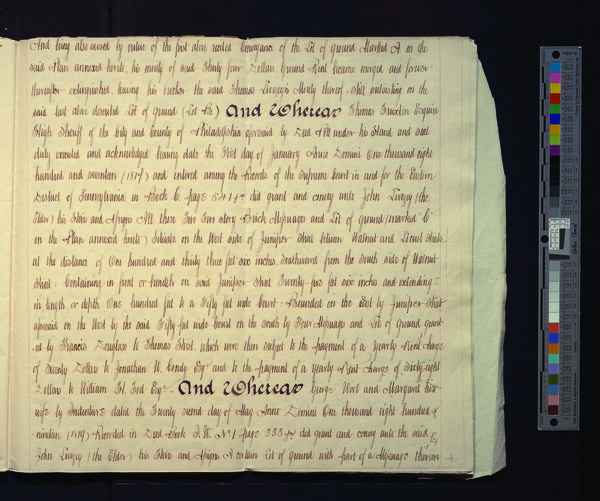 And being also seized by virtue of the first above recited Conveyance of the Lot of ground Marked A on the
said Plan annexed hereto, his moiety of said Thirty four Dollars, Ground Rent became merged and forever
thereafter extinguished, leaving his brother the said Thomas Livezey's Moiety thereof, still outstanding on the
said last above described Lot of ground (Lot B) And Whereas Thomas Truxtun Esquire
High Sheriff of the City and County of Philadelphia aforesaid by Deed Poll under his Hand and Seal
duly executed and acknowledged bearing date the First day of January Anno Domini One thousand eight
hundred and seventeen (1817) and entered among the Records of the Supreme Court in and for the Eastern
District of Pennsylvania in Book C. page 541 &c did grant and convey unto John Livezey (the
Elder) his Heirs and Assigns All those Two Two story Brick Messuages and Lot of ground (marked "C"
on the Plan annexed hereto) Situate on the West side of Juniper Street between Walnut and Locust Streets
at the distance of One hundred and thirty three feet six inches, Southward from the South side of Walnut
Street: Containing in front or breadth on said Juniper Street Twenty-five feet six inches and extending
in length or depth One hundred feet to a Fifty feet wide Court: Bounded on the East by Juniper Street
aforesaid on the West by the said Fifty feet wide Court on the South by Four Messuages and Lot of ground grant-
ed by Francis Douglas to Thomas Short. which were then subject to the payment of a yearly Rent charge
of Seventy Dollars to Jonathan W. Condy Esqr and to the payment of a yearly Rent Charge of Sixty eight
Dollars to William H. Tod Esqr. And Whereas George Wort and Margaret his
wife by Indenture dated the Twenty second day of May Anno Domini One thousand eight hundred &
nineteen (1819) Recorded in Deed Book No 1 page 333 &c did grant and convey unto the said
John Livezey (the Elder) his Heirs and Assigns A certain Lot of ground with part of a Messuage thereon